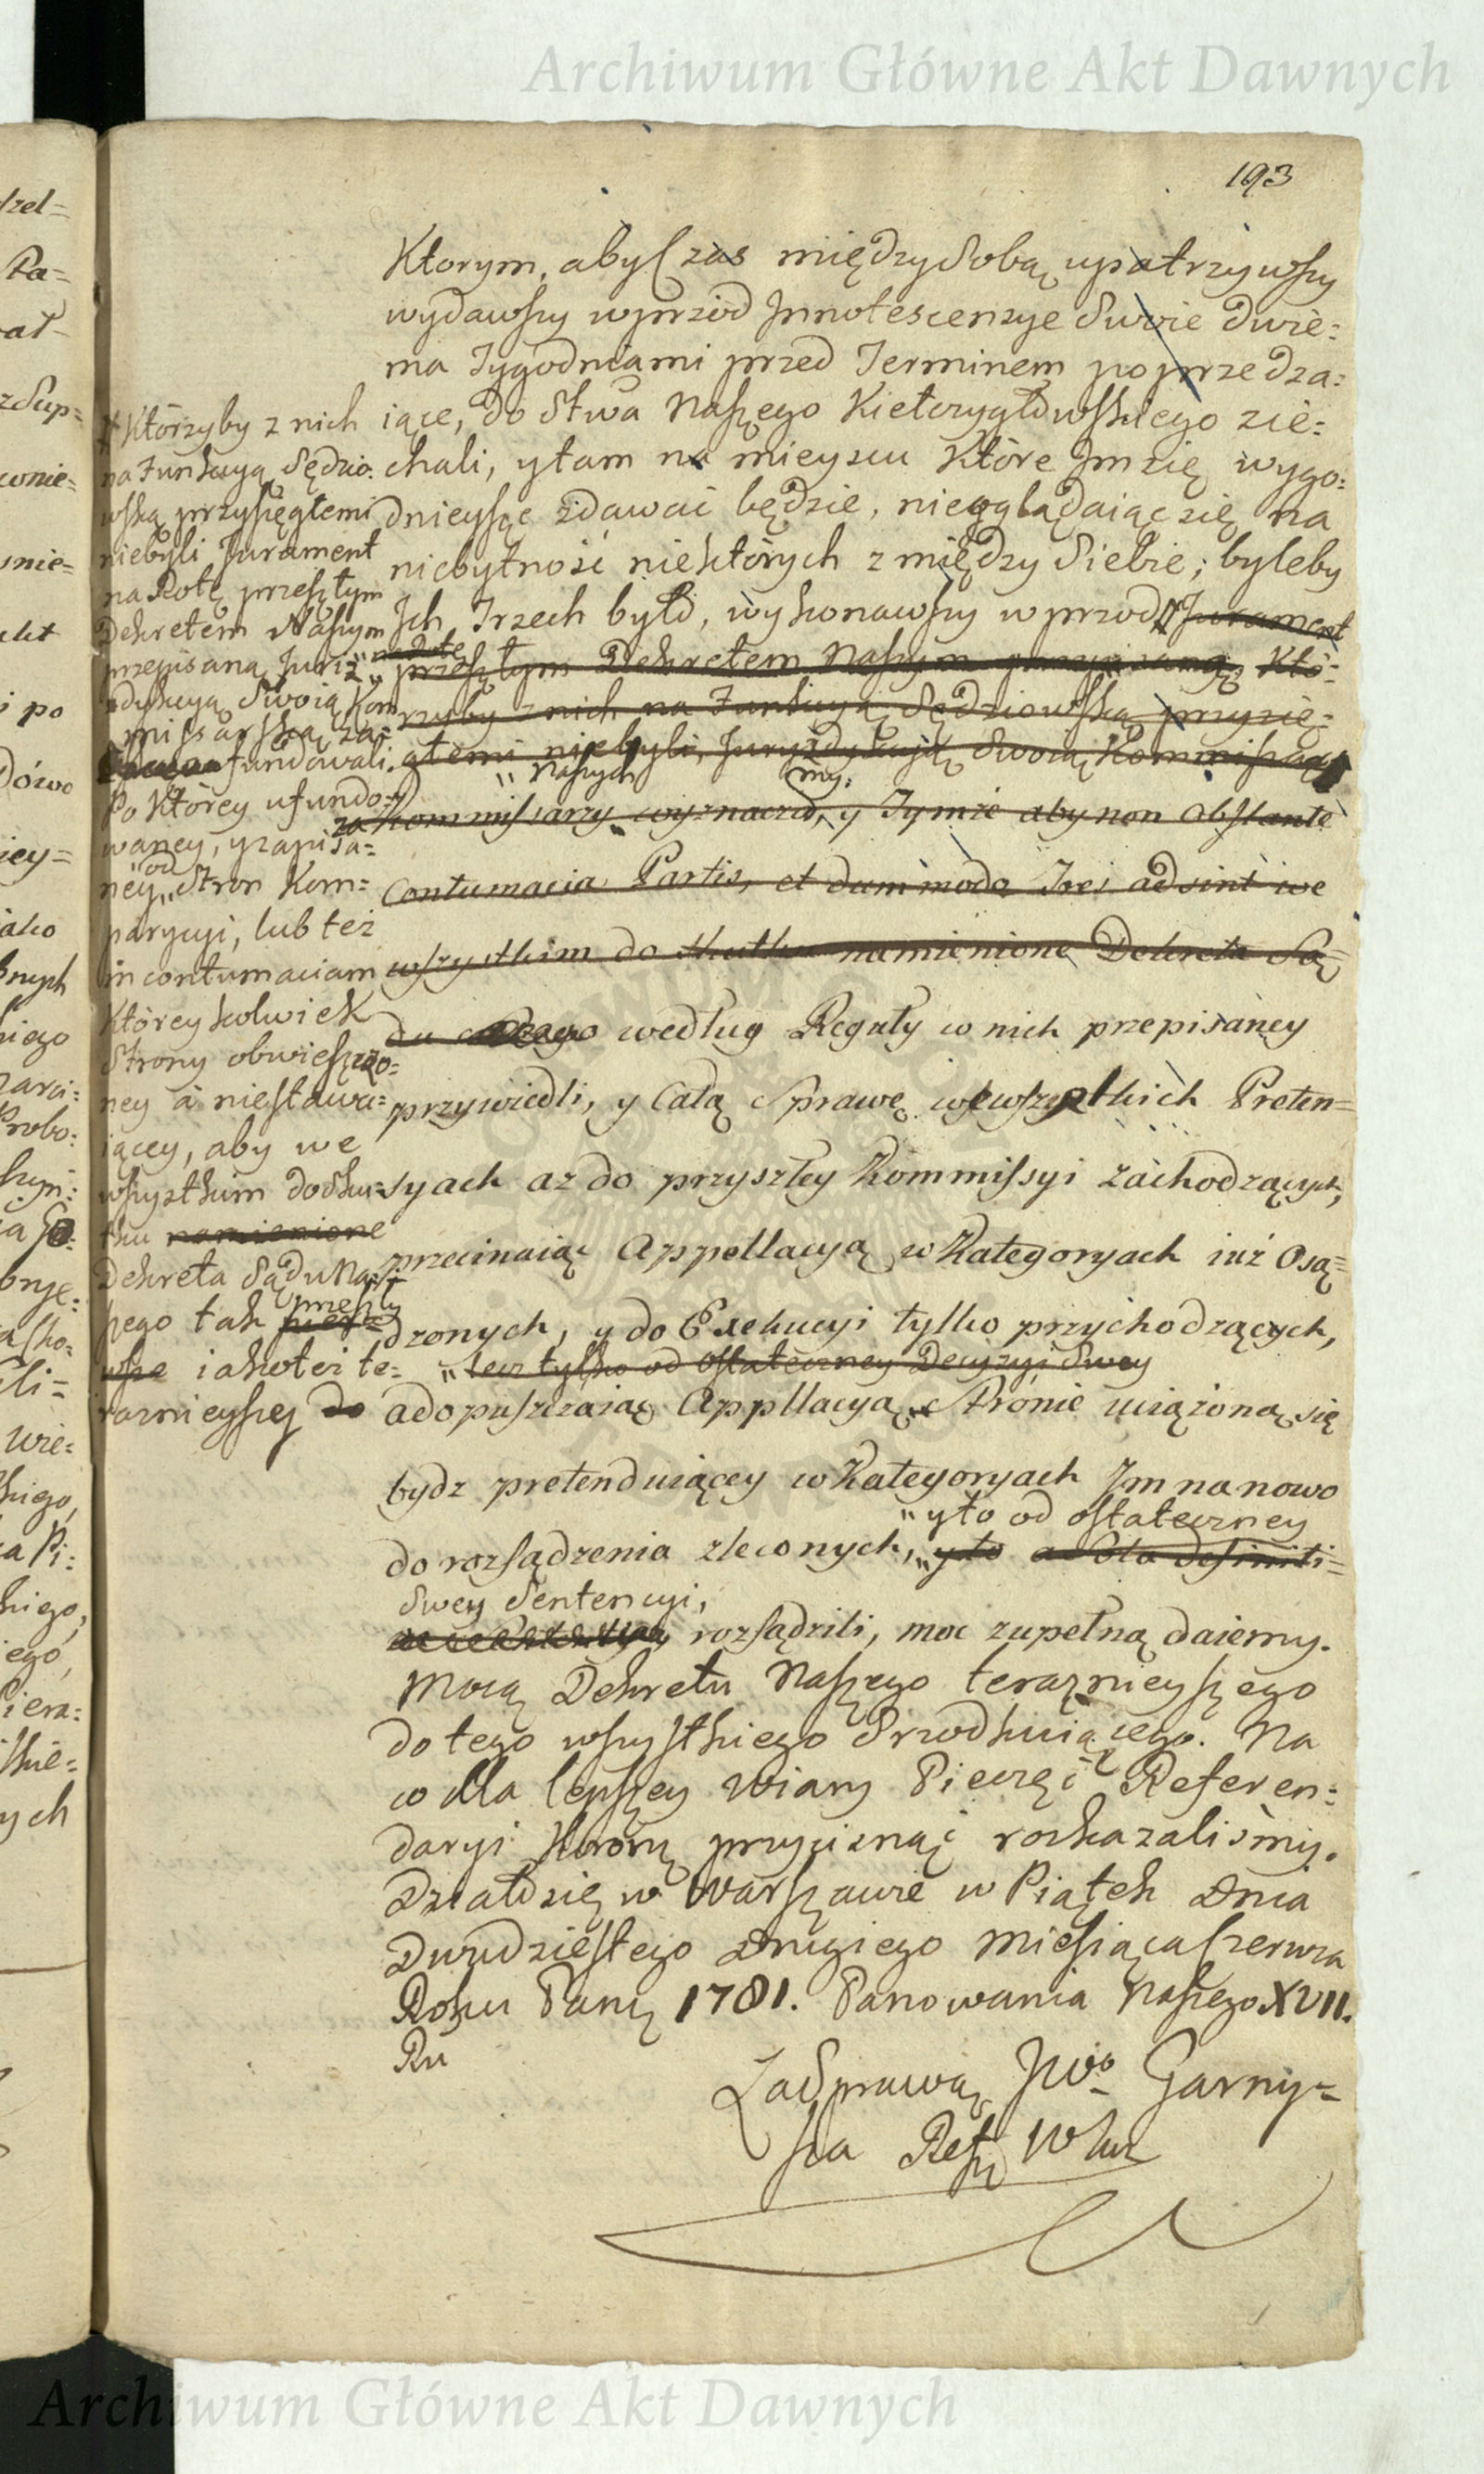 Archiwum Główne Akt Dawnych
193
Ktorym, aby Czas między Sobą upatrzywszy
wydawszy wprzod Innotescencye Swoie dwie=
ma Tygodniami przed Terminem poprzedza=
iące, do Stwa Naszego Kiełczygłowskiego zie=
chali, y tam na mieyscu które Im się wygo=
dnieysze zdawać będzie, nieoglądaiąc się na
niebytność niektórych z między Siebie; byleby
Ich Trzech było, wykonawszy wprzod # Jurament
na Rotę
przeszłym Dekretem Naszym przepisaną, Któ=
rzyby z nich na Funkcyą Sędziowską przysię=
głemi niebyli, Juryzdykcyą Swoią Kommissar
Naszych my,
za Kommissarzy wyznaczo, y Tymże aby non obstante
Contumacia Partis, et dummodo Tres adsint we
wszystkim do Skutku namienione Dekreta Są
du według Reguły w nich przepisaney
przywiedli, y Całą Sprawę we wszystkich Preten=
syach aż do przyszłey Kommissyi zachodzących,
przecinaiąc Appellacyą w Kategoryach iuż Osą=
dzonych, y do Exekucyi tylko przychodzących,
"lecz tylko od Ostateczney Decyzyi Swey
a dopuszczaiąc Appllacyą Stronie uciążoną się
bydz pretenduiącey w Kategoryach Im nanowo
"y to od ostateczney
do rozsądzenia zleconych, "y to a Definiti=
Swey Sentencyi,
rozsądzili, moc zupełną daiemy.
Mocą Dekretu Naszego teraznieyszego
do tego wszystkiego Srzodkuiącego. Na
co dla lepszey Wiary Pieczęć Referen=
daryi Korony przycisnąć roskazaliśmy.
Działo się w Warszawie w Piątek Dnia
Dwudziestego Drugiego Miesiąca Czerwca
Roku Pansz 1781. Panowania Naszego XVII.
Ru
Za Sprawą JWo Garny=
sza Ref Wkor
# Którzyby z nich
na Funkcyą Sędzio=
wską przysięgłemi
niebyli Jurament
na Rotę przeszłym
Dekretem Naszym
przepisaną Juriz
dykcyą Swoią Kom
missarską za=
fundowali.
Po Którey ufundo=
waney, y zapisa=
ney "od Stron Kom=
parycyi, lub też
in contumaciam
Któreykolwiek
Strony obwieszczo=
ney a niestawa=
iącey, aby we
wszystkim do Sku=
tku namienione
Dekreta Sądu Na=
przeszły
szego tak pierw=
wsze iako też te=
raznieyszy do
Archiwum Główne Akt Dawnych